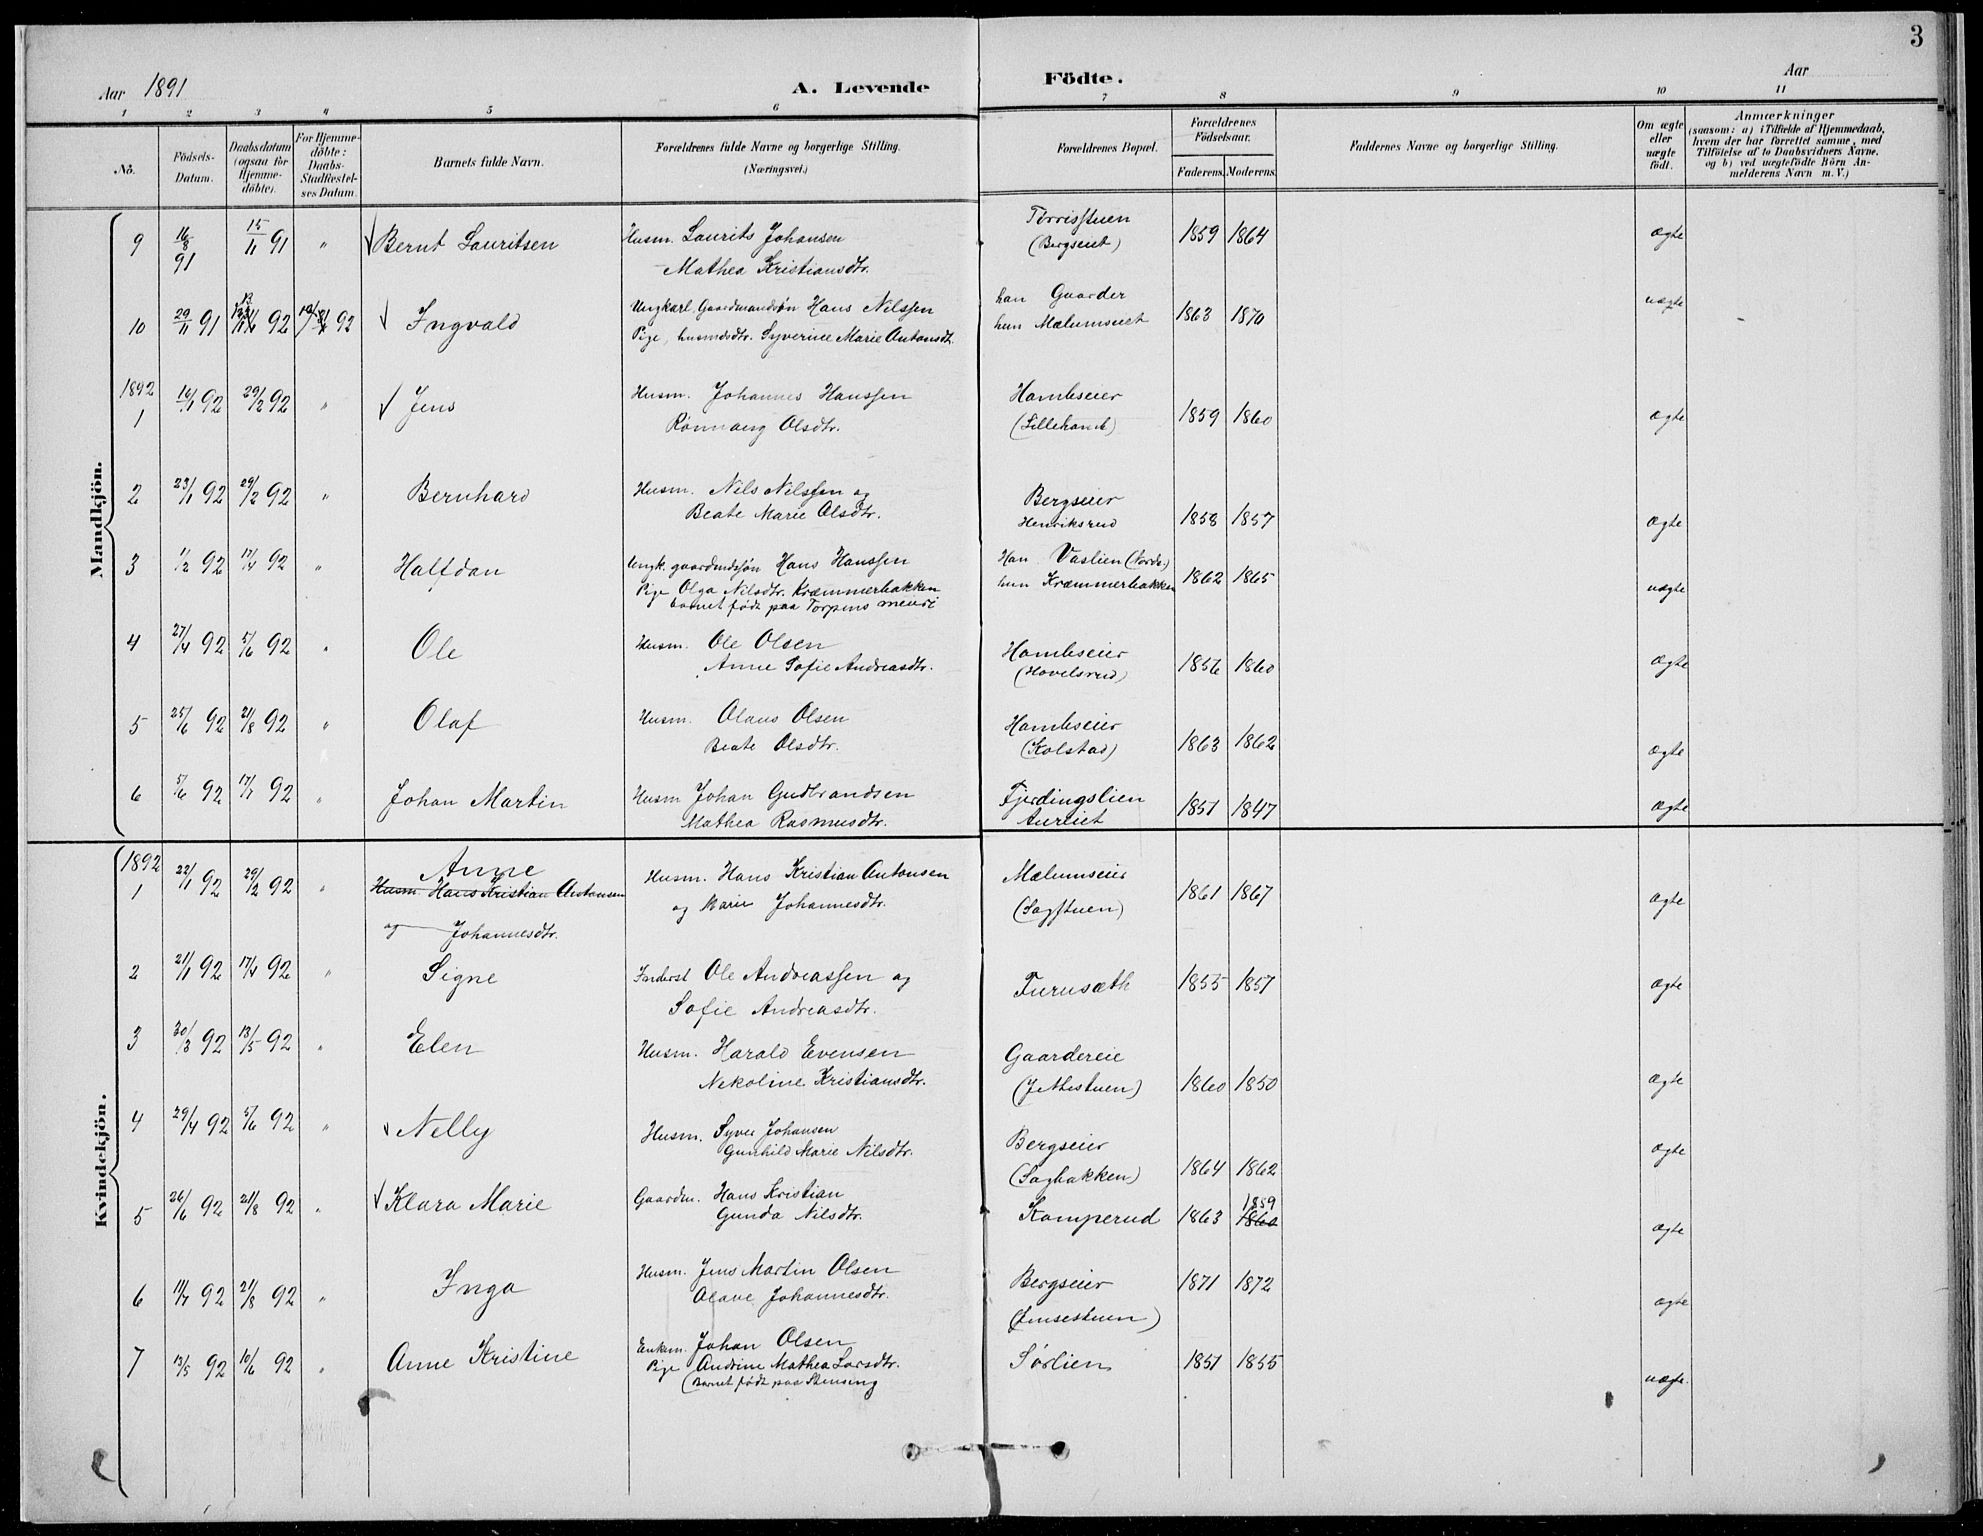 3
Aar 1891
A. Levende
Födte.
Aar
1 2 3 4 5 6 7 8 9 10 11
No.
Födsels-Datum.
Daabsdatum (ogsaa for Hjemme-döbte).
For Hjemme-döbte: Daabs-Stadfæstel-ses Datum.
Barnets fulde Navn.
Forældrenes fulde Navne og borgerlige Stilling.
(Næringsvei.)
Forældrenes Bopæl.
Forældrenes Födselsaar.
Faderens. Moderens.
Faddernes Navne og borgerlige Stilling.
Om ægte eller uægte födt.
Anmærkninger
(saasom: a) i Tilfælde af Hjemmedaab,
hvem der har forrettet samme, med
Tilföielse af to Daabsvidners Navne,
og b) ved uægtefödte Börn An-
melderens Navn m. V.)
Mandkjön.
9 16/8 91 15/11 91 " Bernt Lauritsen Husm. Laurits Johansen Tørrisstuen 1859 1864 ægte
Mathea Kristiansdtr. (Bergseiet)
10 29/11 91 92 92 Ingvald Ungkarl, Gaardmandsøn Hans Nilssen han Gaarder 1863 1870 uægte
Pige, husmdsdtr. Syverine Marie Antonsdt. hun Mælumseiet
1892
1 16/1 92 29/2 92 " Jens Husm. Johannes Hanssen Hambseier 1859 1860 ægte
Rønnaug Olsdtr. (Lillehamb)
2 23/1 92 29/2 92 " Bernhard Husm. Nils Nilssen og Bergseier 1858 1857 ægte
Beate Marie Olsdtr. Henriksrud
3 1/2 92 17/4 92 " Halfdan Ungk. gaardmdssøn Hans Hanssen Han Vaslien (Nordr.) 1862 1865 uægte
Pige Olga Nilsdtr. Kræmmerbakken hun Kræmmerbakken
barnet født paa Torpens meieri
4 27/4 92 5/6 92 " Ole Husm. Ole Olsen Hambseier 1856 1860 ægte
Anne Sofie Andreasdtr. (Hovelsrud)
5 25/6 92 21/8 92 " Olaf Husm. Olaus Olsen Hambseier 1863 1862 ægte
Beate Olsdtr. (Kolstad)
6 5/6 92 17/7 92 " Johan Martin Husm Johan Gudbrandsen Fjerdingslien 1851 1847 ægte
Mathea Rasmusdtr. Aureiet
Kvindekjön.
1892
1 22/1 92 29/2 92 " Anne Husm. Hans Kristian Antonsen Mælumseier 1861 1867 ægte
Husm. Hans Kristian Antonsen og Marie Johannesdtr. (Sagstuen)
og Johannesdtr.
2 21/1 92 17/4 92 " Signe Inderst Ole Andreassen og Furusæth 1855 1857 ægte
Sofie Andreasdtr.
3 30/3 92 13/5 92 " Elen Husm. Harald Evensen Gaardereie 1860 1850 ægte
Nekoline Kristiansdtr. (Jettestuen)
4 29/4 92 5/6 92 " Nelly Husm. Syver Johansen Bergseier 1864 1862 ægte
Gunhild Marie Nilsdtr. (Sagbakken)
5 26/6 92 21/8 92 " Klara Marie Gaardm. Hans Kristian Kamperud 1863 1860 1859 ægte
Gunda Nilsdtr.
6 11/7 92 21/8 92 " Inga Husm. Jens Martin Olsen Bergseier 1871 1872 ægte
Olave Johannesdtr. (Jensestuen)
7 13/5 92 10/6 92 " Anne Kristine Enkem. Johan Olsen Sørlien 1851 1855 uægte.
Pige Andrine Mathea Larsdtr.
(Barnet født paa Stensing